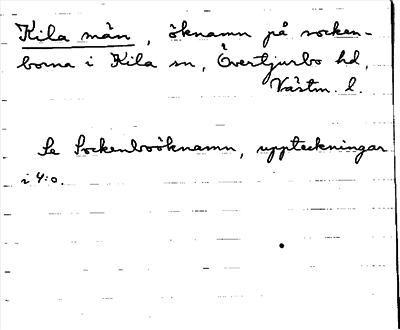 Kila män, öknamn på socken-
borna i Kila sn, Övertjurbo hd,
Västm. l.
Se Sockenboöknamn, uppteckningar
i 4:o.